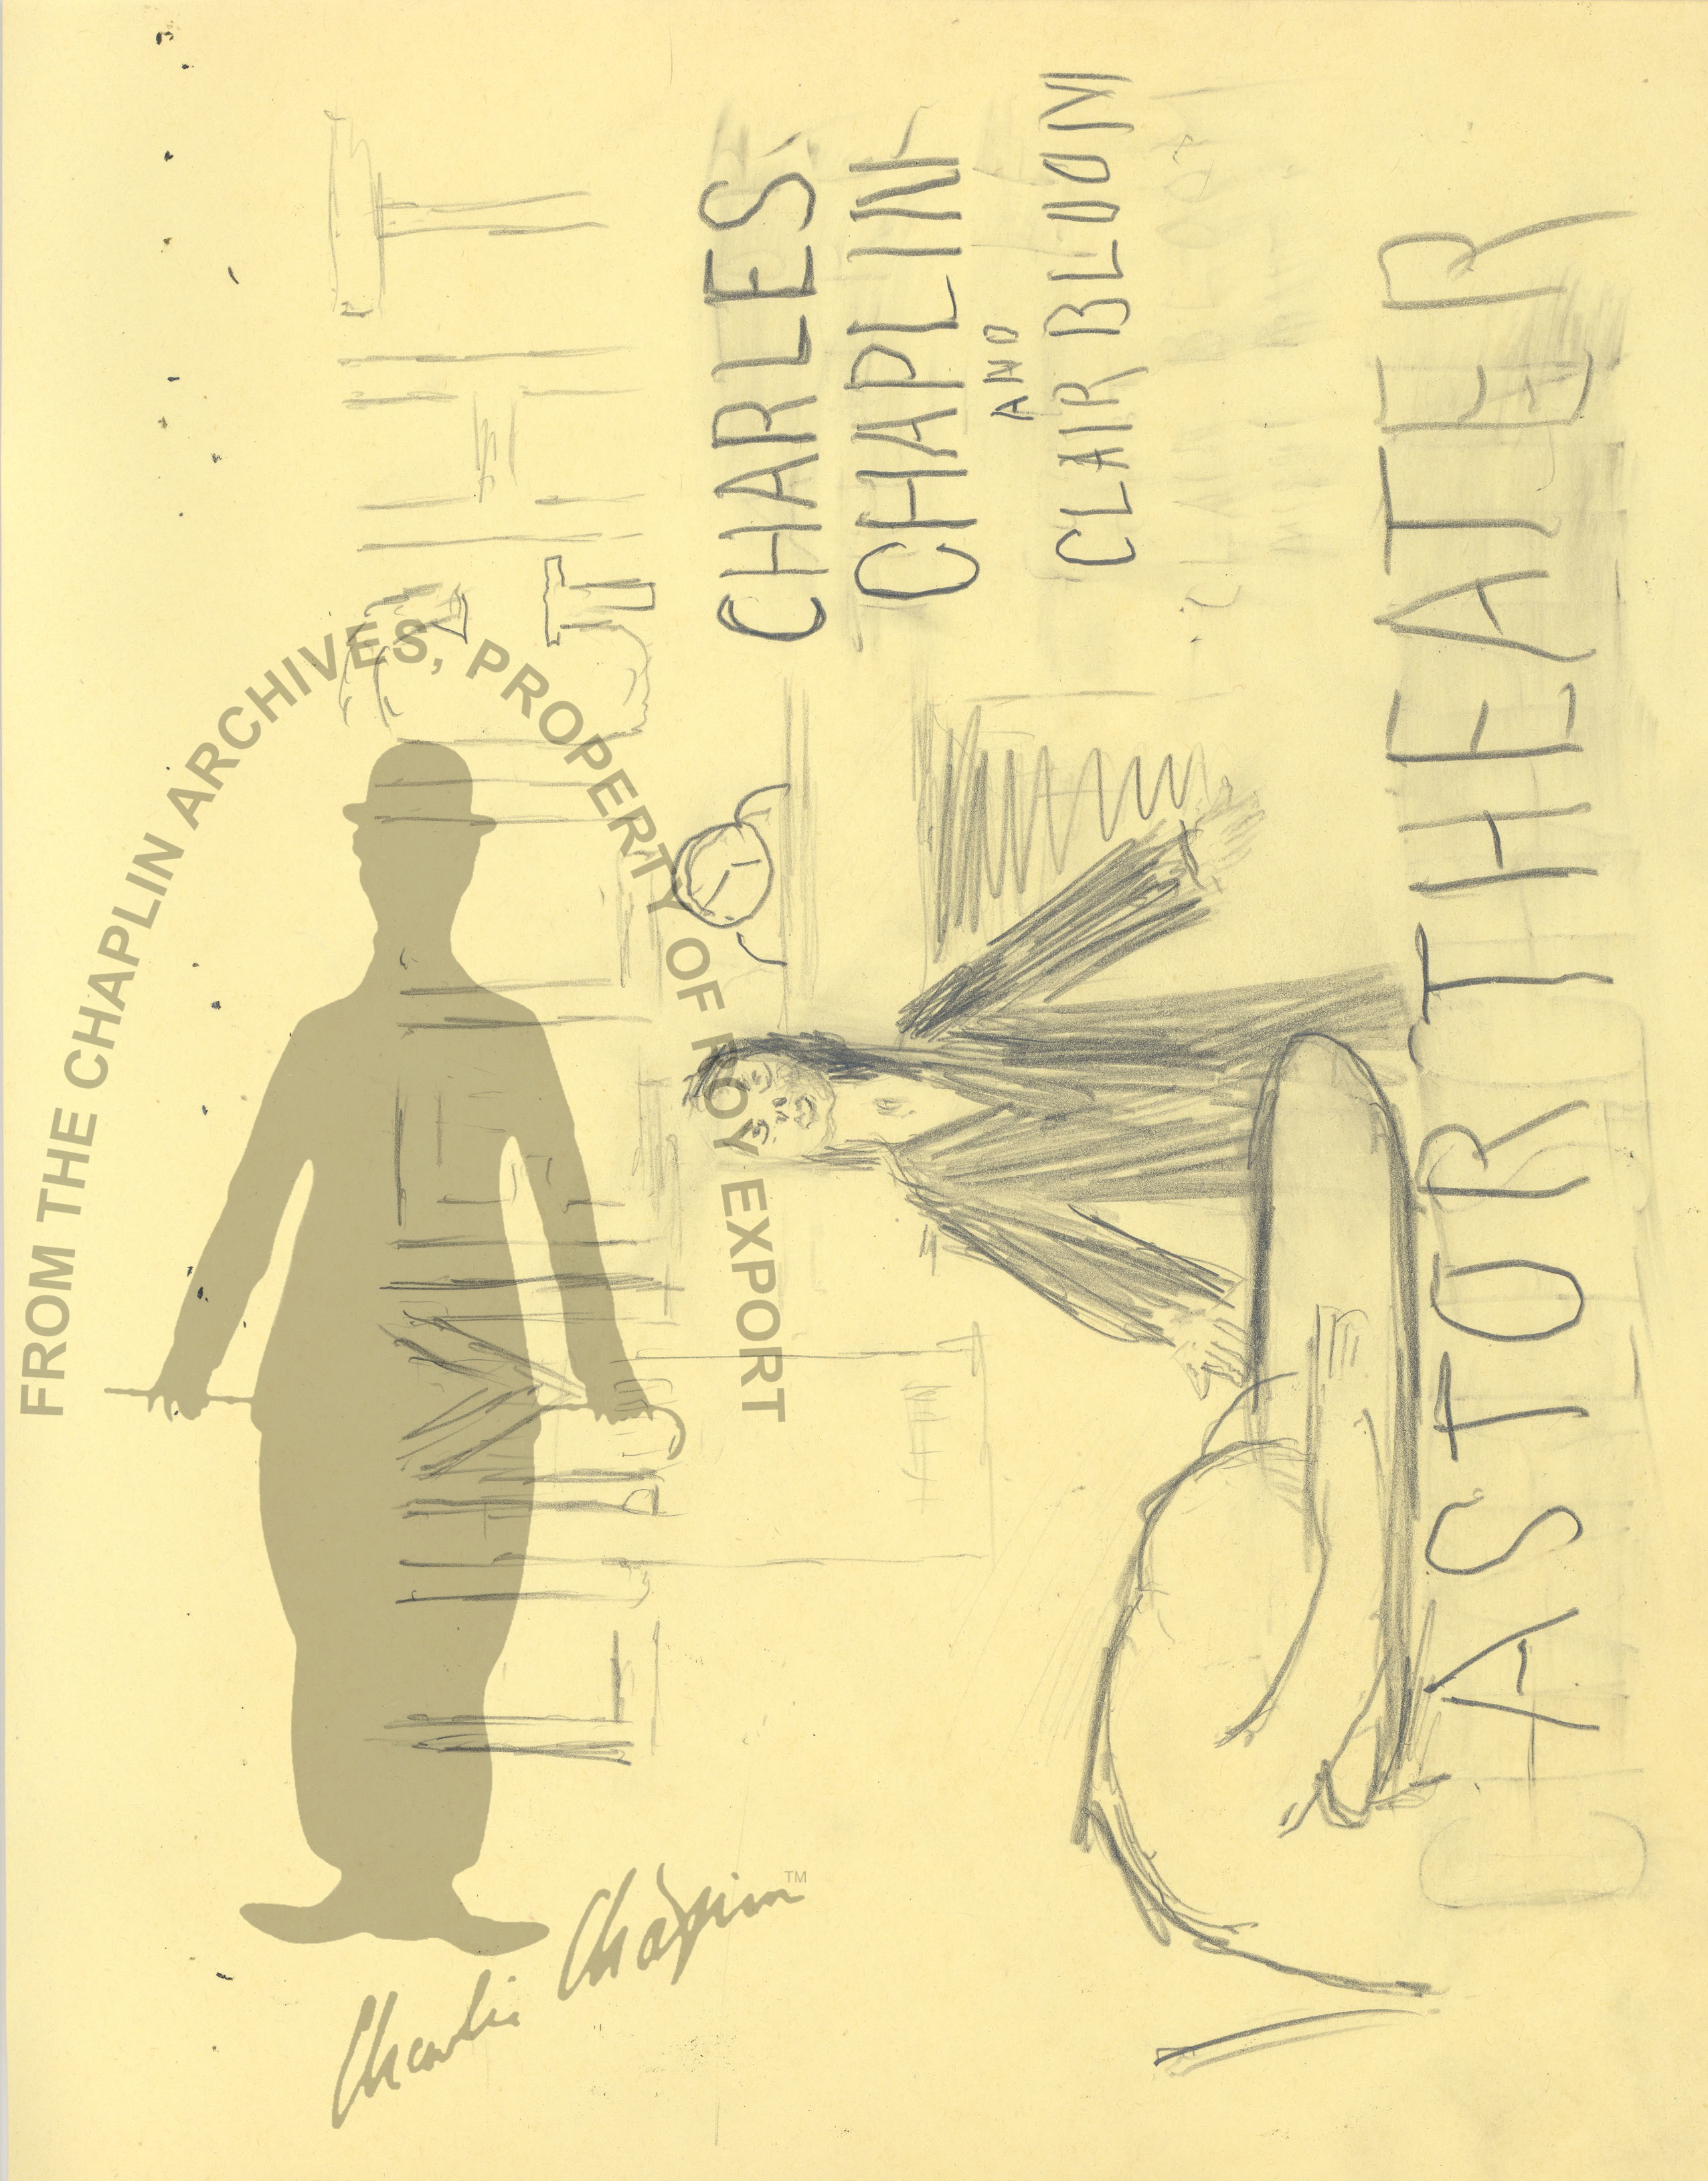 FROM THE CHAPLIN ARCHIVES, PROPERTY OF ROY EXPORT
Charlie Chaplin™
LIMELIGHT
CHARLES
CHAPLIN
AND
CLAIR BLOOM
ASTOR THEATER